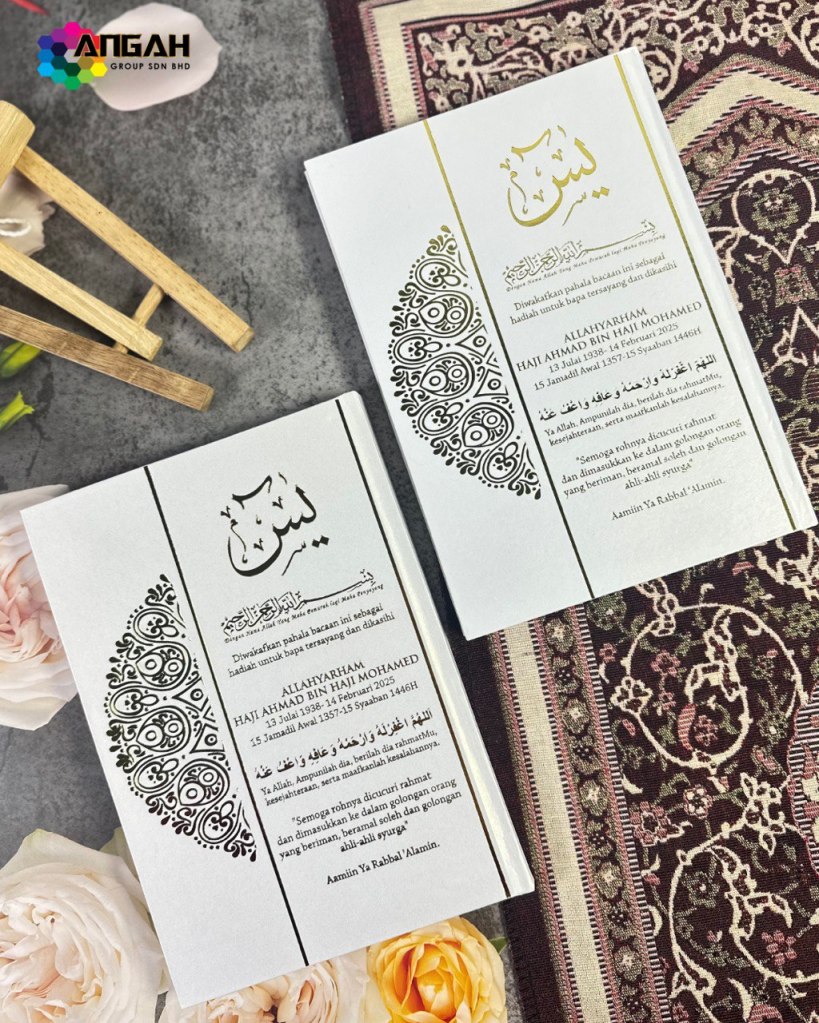 ANGAH
GROUP SDN BHD
يس
بِسْمِ اللَّهِ الرَّحْمَنِ الرَّحِيمِ
Dengan Nama Allah Yang Maha Pemurah lagi Maha Penyayang
Diwakafkan pahala bacaan ini sebagai
hadiah untuk bapa tersayang dan dikasihi
ALLAHYARHAM
HAJI AHMAD BIN HAJI MOHAMED
13 Julai 1938- 14 Februari 2025
15 Jamadil Awal 1357-15 Syaaban 1446H
اَللهُمَّ اغْفِرْلَهُ وَارْحَمْهُ وَعَافِهِ وَاعْفُ عَنْهُ
Ya Allah, Ampunilah dia, berilah dia rahmatMu,
kesejahteraan, serta maafkanlah kesalahannya.
"Semoga rohnya dicucuri rahmat
dan dimasukkan ke dalam golongan orang
yang beriman, beramal soleh dan golongan
ahli-ahli syurga"
Aamiin Ya Rabbal 'Alamin.
يس
بِسْمِ اللَّهِ الرَّحْمَنِ الرَّحِيمِ
Dengan Nama Allah Yang Maha Pemurah lagi Maha Penyayang
Diwakafkan pahala bacaan ini sebagai
hadiah untuk bapa tersayang dan dikasihi
ALLAHYARHAM
HAJI AHMAD BIN HAJI MOHAMED
13 Julai 1938- 14 Februari 2025
15 Jamadil Awal 1357-15 Syaaban 1446H
اَللهُمَّ اغْفِرْلَهُ وَارْحَمْهُ وَعَافِهِ وَاعْفُ عَنْهُ
Ya Allah, Ampunilah dia, berilah dia rahmatMu,
kesejahteraan, serta maafkanlah kesalahannya.
"Semoga rohnya dicucuri rahmat
dan dimasukkan ke dalam golongan orang
yang beriman, beramal soleh dan golongan
ahli-ahli syurga"
Aamiin Ya Rabbal 'Alamin.